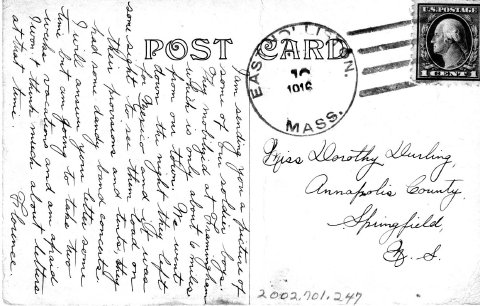 POST CARD
U.S. POSTAGE
1 CENT 1
EAST
N.
MASS.
1916
I am sending you a picture of
some of our soldier boys.
They mobilized at Framingham
which is only about 6 miles
from our town. We went
down the night they left
for Mexico and it was
some sight to see them load on
their provisions and tents, they
had some dandy band concerts.
I will answer your letter some
time but am going to take two
weeks vacations and am afraid
I won't think much about letters
at that time. Florence.
Miss Dorothy Durling,
Annapolis County,
Springfield,
N. S.
2002.701.247